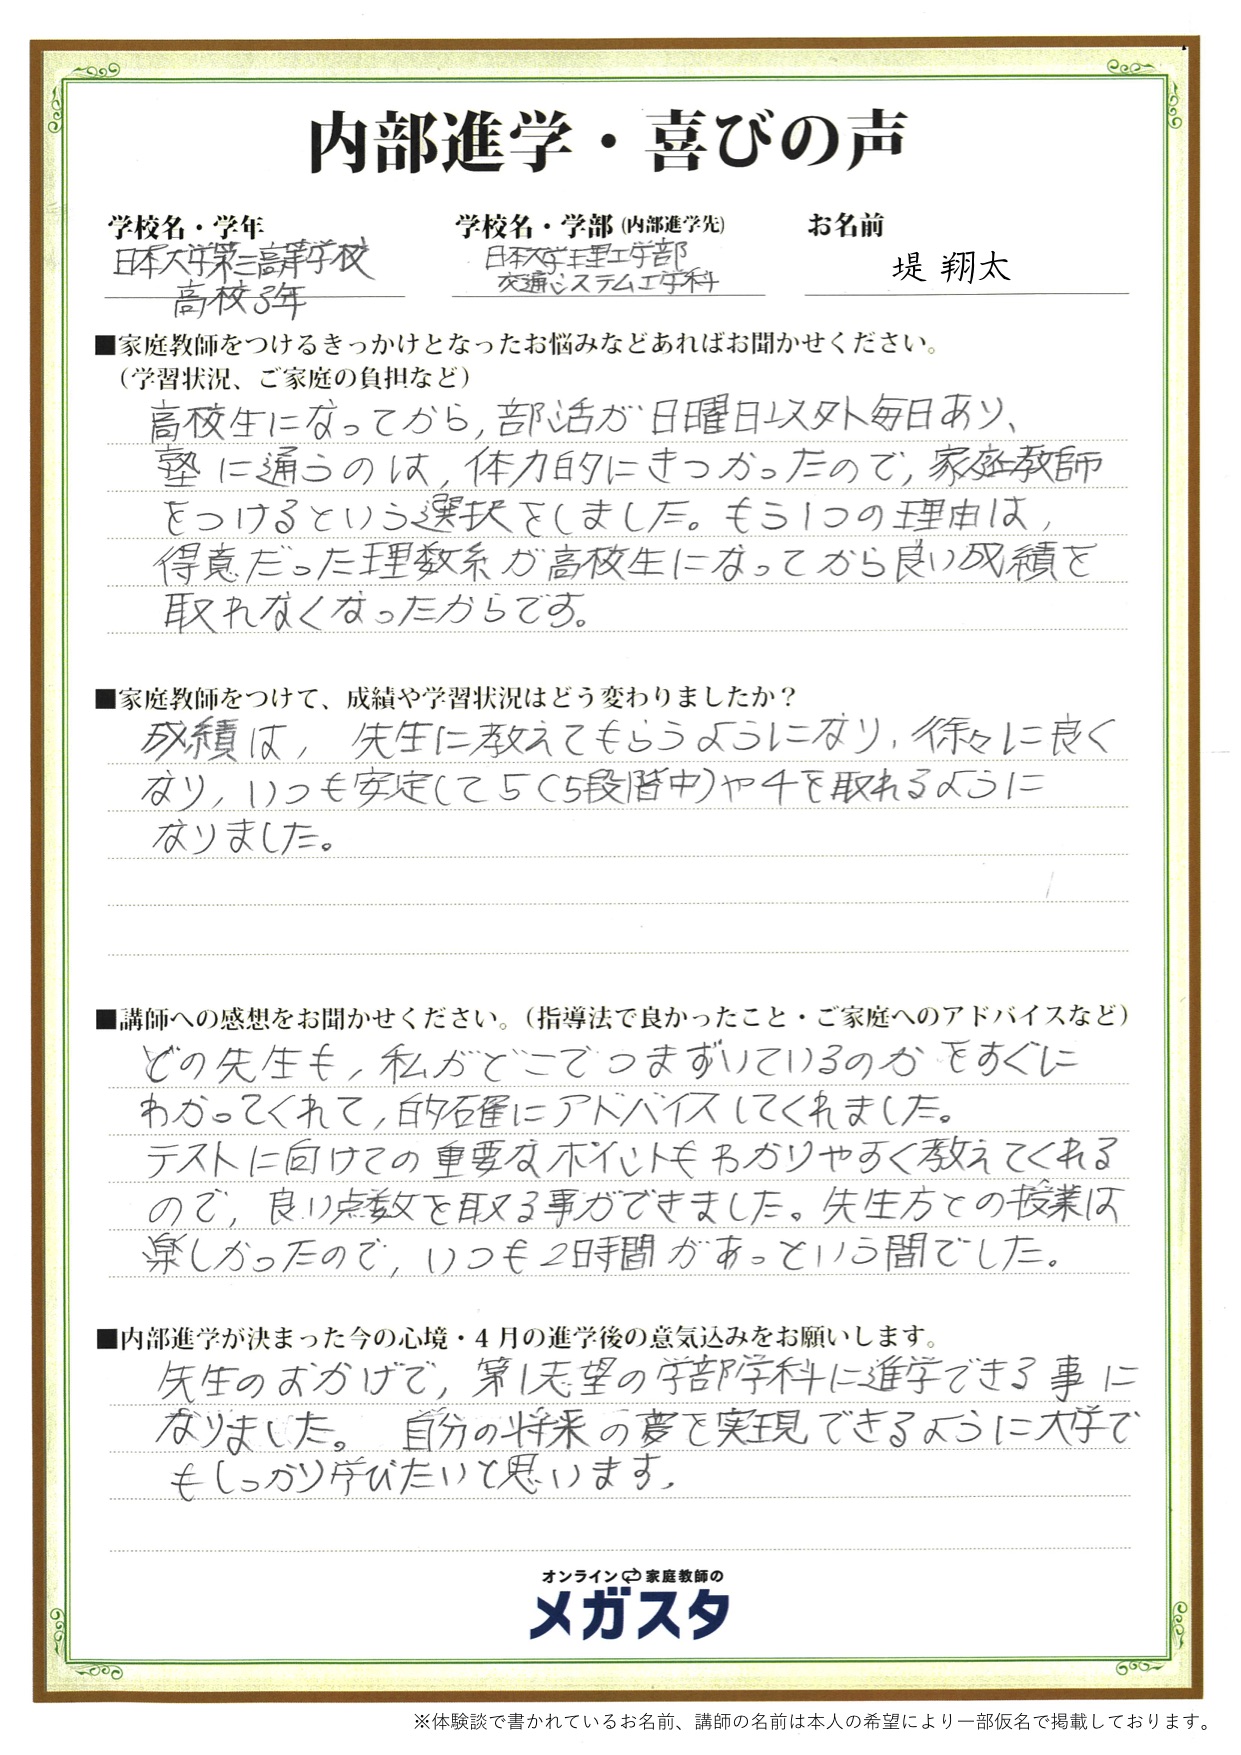 内部進学・喜びの声
学校名・学年
学校名・学部(内部進学先)
お名前
日本大学第三高等学校
高校3年
日本大学理工学部
交通システム工学科
堤 翔太
■家庭教師をつけるきっかけとなったお悩みなどあればお聞かせください。
(学習状況、ご家庭の負担など)
高校生になってから,部活が日曜日以外毎日あり、
塾に通うのは,体力的にきつかったので,家庭教師
をつけるという選択をしました。もう1つの理由は,
得意だった理数系が高校生になってから良い成績を
取れなくなったからです。
■家庭教師をつけて、成績や学習状況はどう変わりましたか?
成績は, 先生に教えてもらうようになり,徐々に良く
なり,いつも安定して5(5段階中)や4を取れるように
なりました。
■講師への感想をお聞かせください。(指導法で良かったこと・ご家庭へのアドバイスなど)
どの先生も,私がどこでつまずいているのかをすぐに
わかってくれて,的確にアドバイスしてくれました。
テストに向けての重要なポイントもわかりやすく教えてくれる
ので,良い点数を取る事ができました。先生方との授業は
楽しかったので,いつも2時間があっという間でした。
■内部進学が決まった今の心境・4月の進学後の意気込みをお願いします。
先生のおかげで,第1志望の学部学科に進学できる事に
なりました。 自分の将来の夢を実現できるように大学で
もしっかり学びたいと思います。
オンライン家庭教師の
メガスタ
※体験談で書かれているお名前、講師の名前は本人の希望により一部仮名で掲載しております。